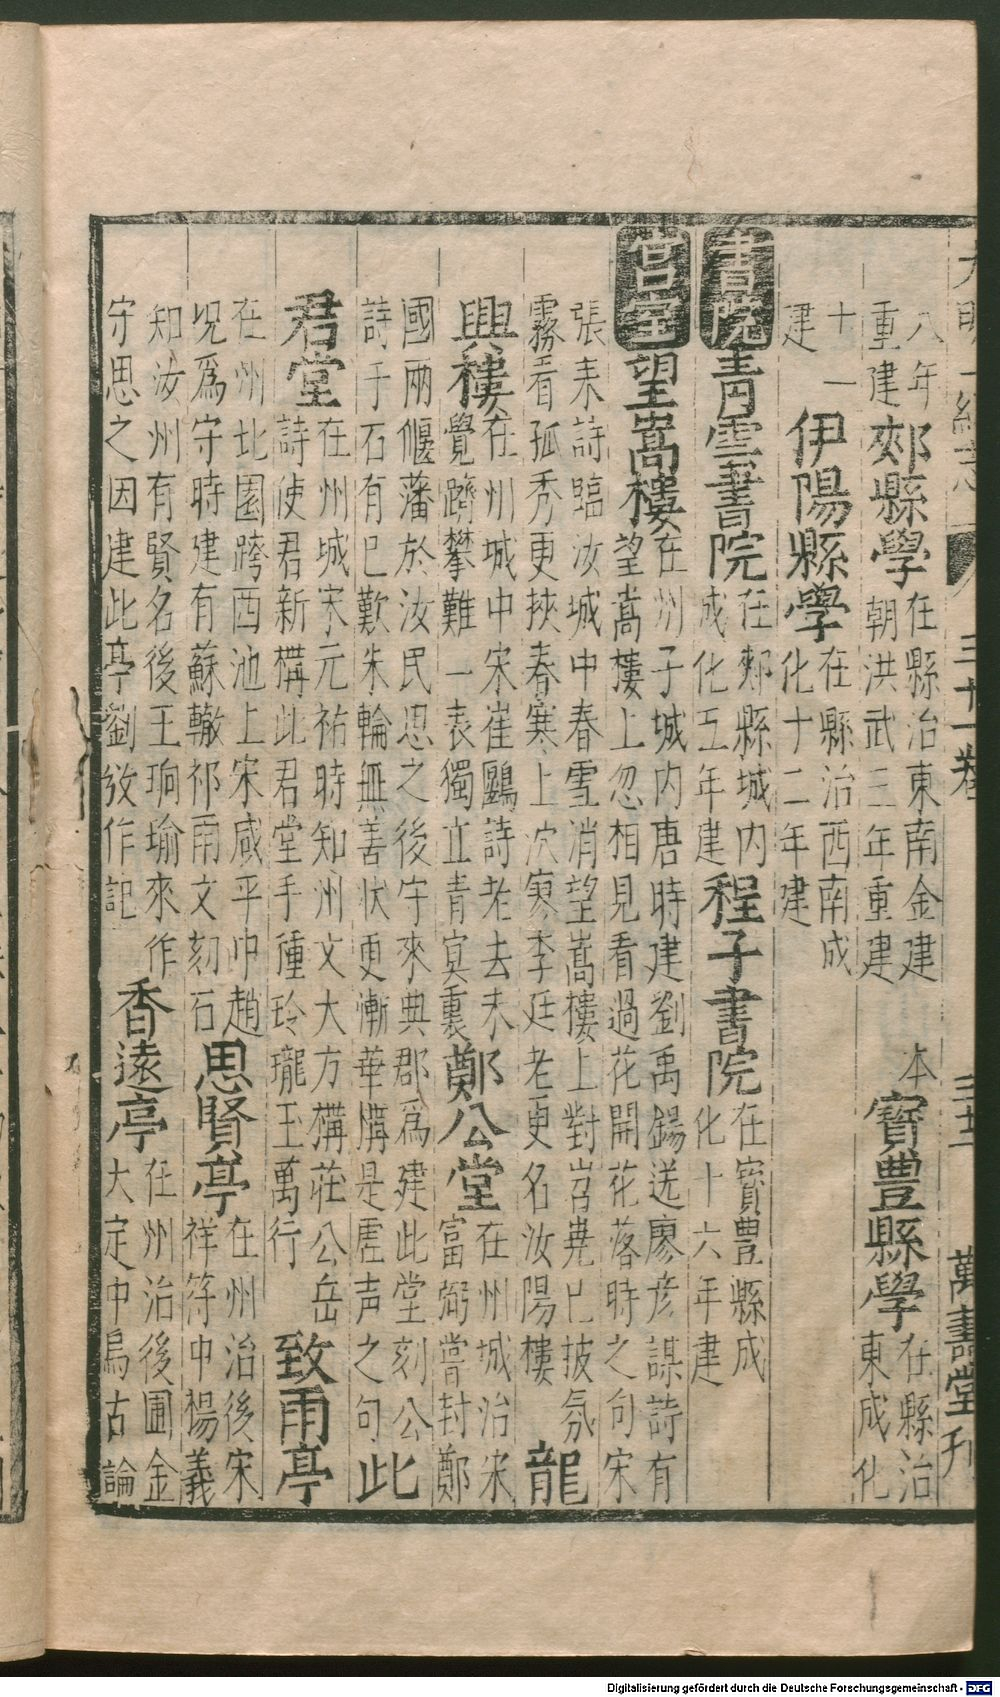 大明一統志 三十一卷 萬壽堂刊
八年重建郟縣學在縣治東南金建本朝洪武三年重建寶豐縣學在縣治東成化
十一建伊陽縣學在縣治西南成化十二年建
書院青雲書院在郟縣城内成化五年建程子書院在寳豊縣成化十六年建
宮室望嵩樓在州子城内唐時建劉禹錫送廖彦謀詩有望嵩樓上忽相見看過花開花落時之句宋
張耒詩臨汝城中春雪消望嵩樓上對岧嶤已披氛霧看孤秀更挾春寒上泬寥李廷老更名汝陽樓龍
興樓在州城中宋崔鷗詩老去未覺躋攀難一表獨立青冥裏鄭公堂在州城治宋富弼嘗封鄭
國兩偃藩於汝民思之後守來典郡爲建此堂刻公詩于石有已歎朱輪無善狀更漸華構是虛声之句此
君堂在州城宋元祐時知州文大方構莊公岳詩使君新構此君堂手種玲瓏玉萬行致雨亭
在州北園跨西池上宋咸平中趙况爲守時建有蘇轍祁雨文刻石思賢亭在州治後宋祥符中楊義
知汝州有賢名後王珦瑜來作守思之因建此亭劉攽作記香遠亭在州治後圃金大定中烏古論
Digitalisierung gefördert durch die Deutsche Forschungsgemeinschaft - DFG